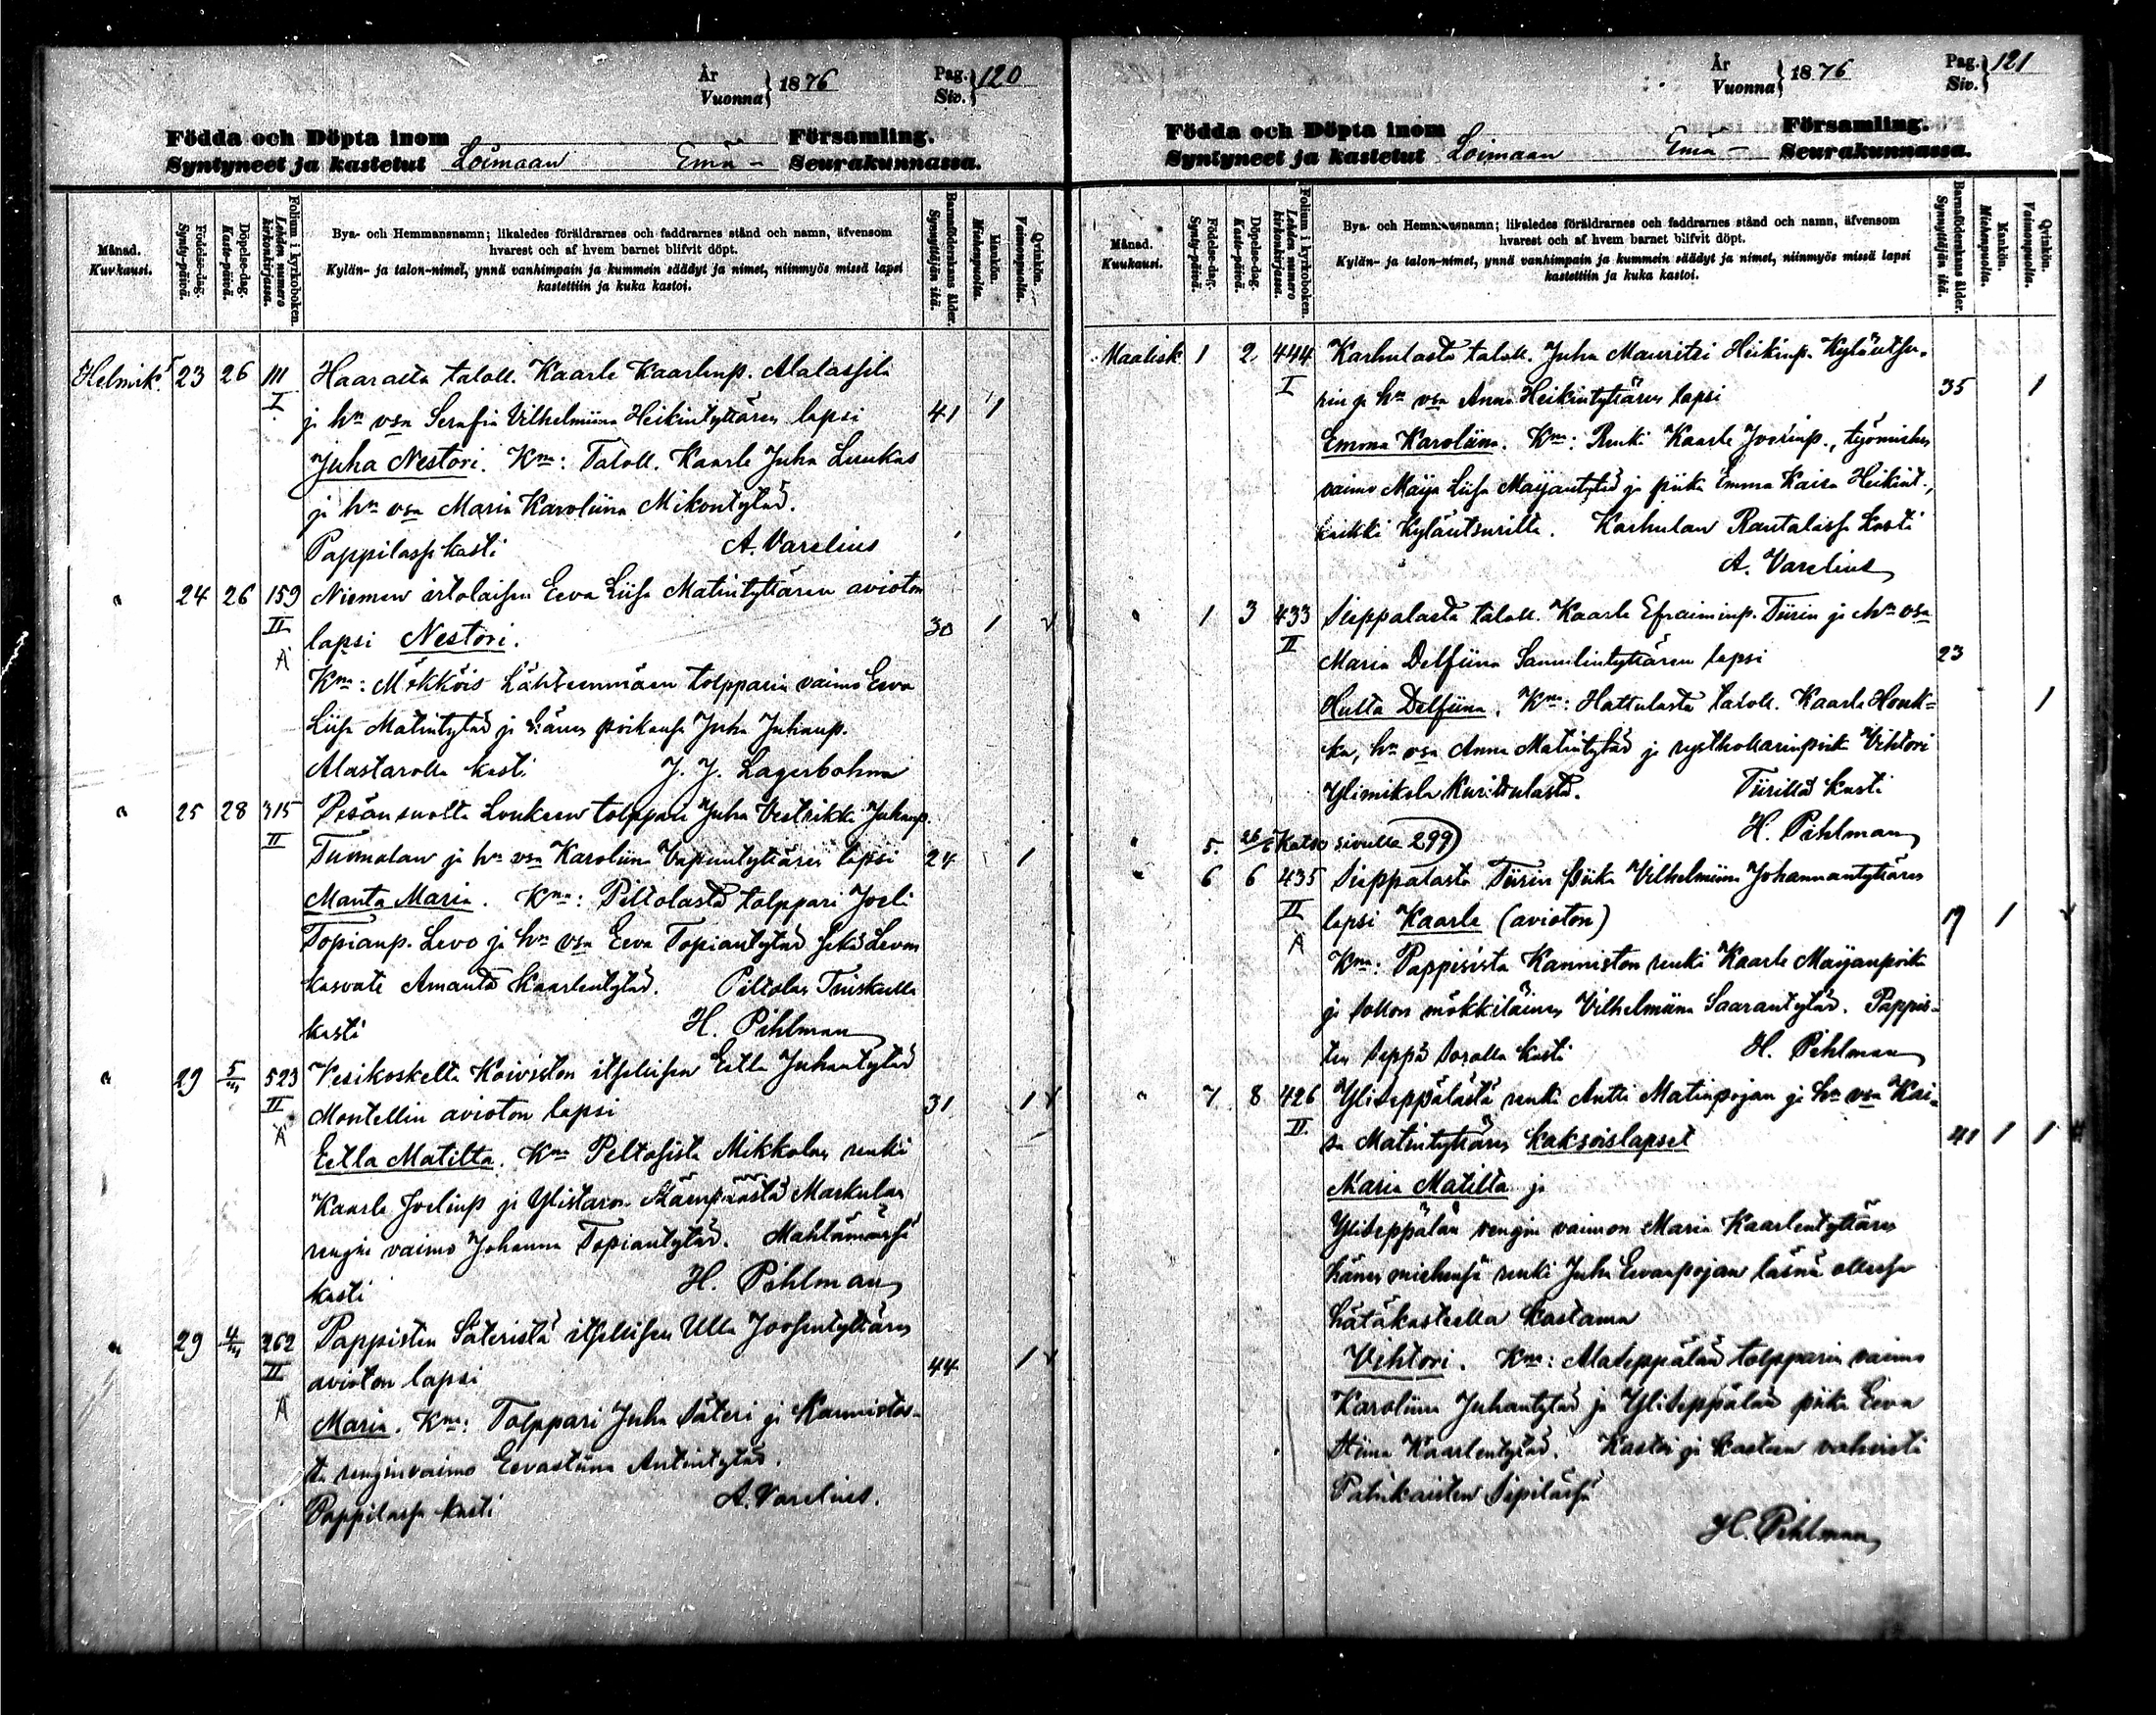 År
Vuonna} 1876
Pag.
Siv.} 120
Födda och Döpta inom Församling.
Syntyneet ja kastetut Loimaan Emä- Seurakunnassa.
Månad.
Kuukausi.
Födelse-dag.
Synty-päivä.
Döpelse-dag.
Kaste-päivä.
Folium i kyrkoboken.
Lehden numero
kirkonkirjassa.
Bya- och Hemmansnamn; likaledes föräldrarnes och faddrarnes stånd och namn, äfvensom
hvarest och af hvem barnet blifvit döpt.
Kylän- ja talon-nimet, ynnä vanhimpain ja kummein säädyt ja nimet, niinmyös missä lapsi
kastettiin ja kuka kastoi.
Barnaföderskans ålder.
Synnyttäjän ikä.
Mankön.
Miehenpuolta.
Qvinkön.
Vaimonpuolta.
Helmik. 23 26 111 Haaraelta taloll. Kaarle Kaarlenp. Alalassila
I ja hn vsn Serafia Vilhelmiina Heikintyttären lapsi 41 1
Juha Nestori. Kmt: Taloll. Kaarle Juha Luukas
ja hn vsn Maria Karoliina Mikontytär.
Pappilassa kasti A. Varelius
" 24 26 159 Niemen irtolaisen Eeva Liisa Matintyttären avioton
II lapsi Nestori. 30 1
A Kmt: Mökköis Lähteenmäen tolpparin vaimo Eeva
Liisa Matintytär ja hänen poikansa Juha Juhanp.
Alastarolla kasti J. J. Lagerbohm
" 25 28 315 Pesänsuolta Loukeen tolppari Juha Vestrikki Juhanp.
II Tuomolan ja hn vsn Karoliina Vapuntyttären lapsi 24 1
Manta Maria. Kmt: Piltolasta tolppari Joeli
Topianp. Levo ja hn vsn Eeva Topiantytär sekä Levon
kasvate Amanda Kaarlentytär. Piltolan Tuiskulla
kasti H. Pihlman
" 29 5/III 523 Vesikoskelta Koiviston itsellisen Eetla Juhantytär
II Montellin avioton lapsi 31 1
A
Eetla Matilta. Kmt Peltoista Mikkolan renki
Kaarle Joelinp ja Ylistaron Kärenpäästä Markulan
rengin vaimo Johanna Topiantytär. Mahlamäessä
kasti H. Pihlman
" 29 4/III 262 Pappisten Säteristä itsellisen Ulla Joosentyttären
II avioton lapsi 44 1
A Maria. Kmt: Tolppari Juha Säteri ja Kannistos-
ta renginvaimo Eevastiina Antintytär.
Pappilassa kasti A. Varelius.
År
Vuonna} 1876
Pag.
Siv.} 121
Födda och Döpta inom Församling.
Syntyneet ja kastetut Loimaan Emä- Seurakunnassa.
Månad.
Kuukausi.
Födelse-dag.
Synty-päivä.
Döpelse-dag.
Kaste-päivä.
Folium i kyrkoboken.
Lehden numero
kirkonkirjassa.
Bya- och Hemmansnamn; likaledes föräldrarnes och faddrarnes stånd och namn, äfvensom
hvarest och af hvem barnet blifvit döpt.
Kylän- ja talon-nimet, ynnä vanhimpain ja kummein säädyt ja nimet, niinmyös missä lapsi
kastettiin ja kuka kastoi.
Barnaföderskans ålder.
Synnyttäjän ikä.
Mankön.
Miehenpuolta.
Qvinkön.
Vaimonpuolta.
Maalisk 1 2 444 Karhulasta taloll. Juha Mauritsi Heikinp. Kyläutsu-
I rin ja hn vsn Anna Heikintyttären lapsi 35 1
Emma Karoliina. Kmt: Renki Kaarle Joosinp., työmiehen
vaimo Maija Liisa Maijantytär ja piika Emma Kaisa Heikint.,
kaikki Kyläutsurilta. Karhulan Rautalassa kasti
A. Varelius
" 1 3 433 Sieppalasta taloll. Kaarle Efraiminp. Tiirin ja hn vsn
II Maria Delfiina Samulintyttären lapsi 23
Hulta Delfiina. Kmt: Hattulasta taloll. Kaarle Honk- 1
ka, hn vsn Anna Matintytär ja rysthollarinpoika Vihtori
Ylimikola Kuritulasta. Tiirillä kasti
H. Pihlman
" 5. Katso sivulla 299)
" 6 6 435 Sieppalasta Tiirin piika Vilhelmiina Johannantyttären
II lapsi Kaarle (avioton) 19 1
A Kmt: Pappisista Kanniston renki Kaarle Maijanpoika
ja Solton mökkiläinen Vilhelmiina Saarantytär. Pappis-
ten Seppä Sorolla kasti H. Pihlman
" 7 8 426 Yliseppälästä renki Antti Matinpojan ja hn vsn Kai-
II sa Matintyttären kaksoislapset 41 1 1
Maria Matilta ja
Yliseppälän rengin vaimon Maria Kaarlentyttären
hänen miehensä renki Juha Eevanpojan läsnä ollessa
hätäkasteella kastama
Vihtori. Kmt: Alaseppälän tolpparin vaimo
Karoliina Juhantytär ja Yliseppälän piika Eeva
Stiina Kaarlentytär. Kastoi ja kasteen vahvisti
Patukaisten Sipilässä
H. Pihlman